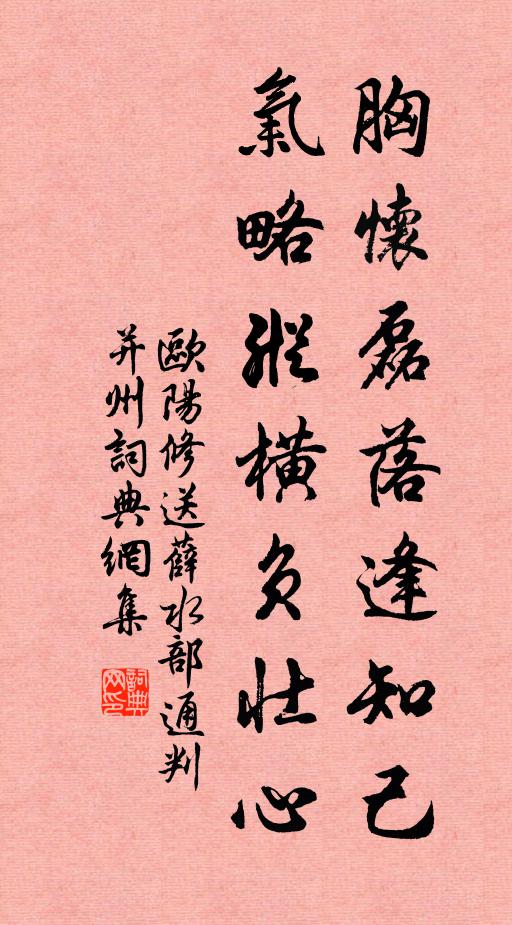 胸懷磊落逢知己
氣略縱橫負壯心
歐陽修送薛水部通判
并州詞典網集
詞典网印